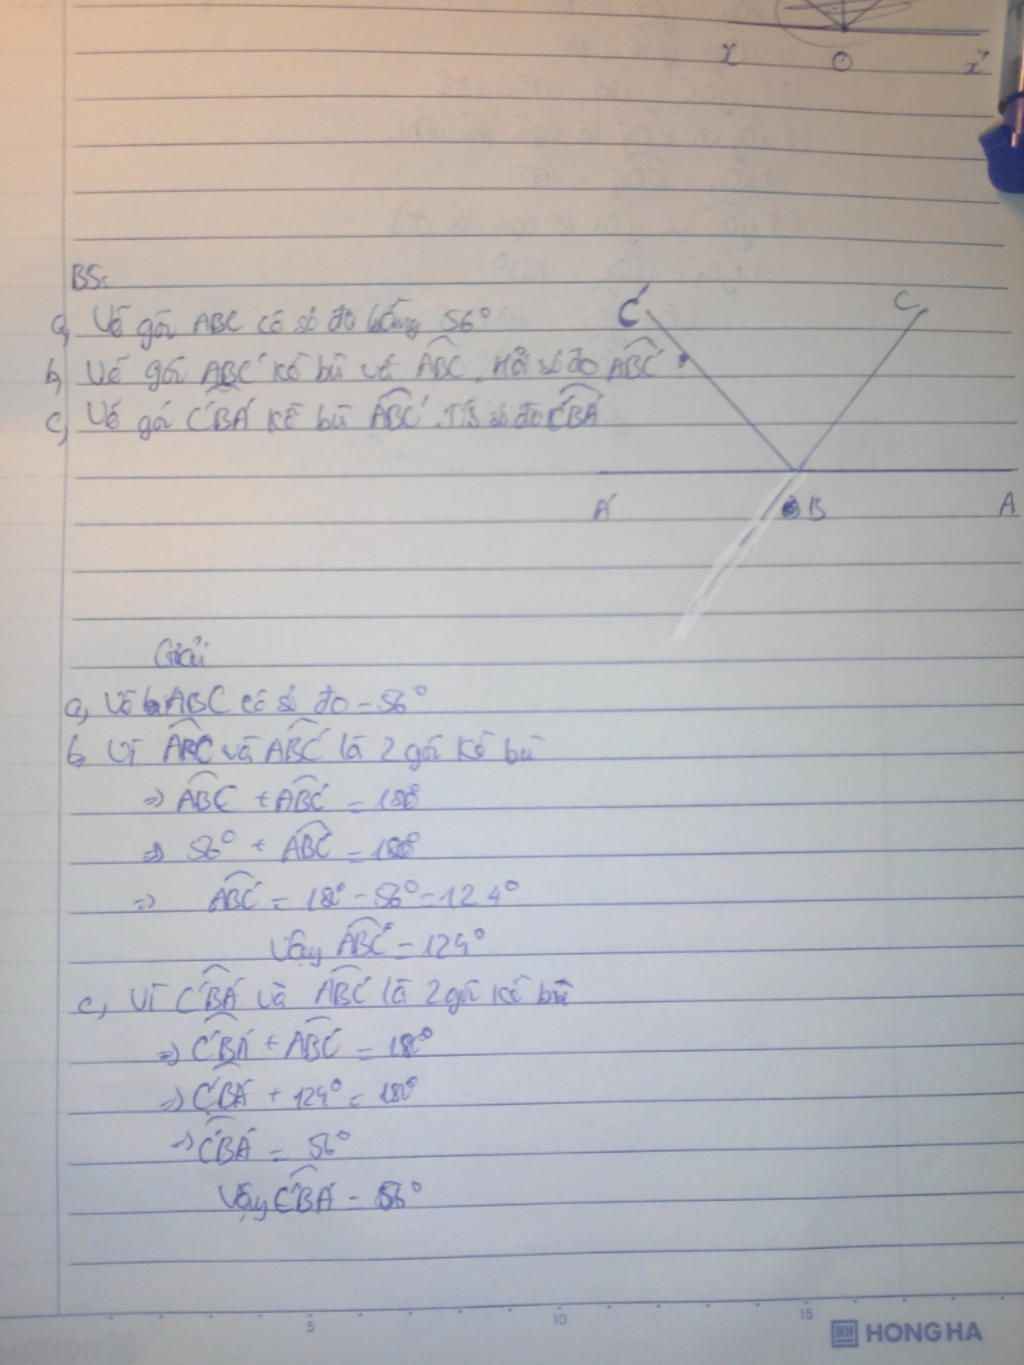 x O x'
B5:
a, Vẽ góc ABC có số đo bằng 56°
C' C
b, Vẽ góc ABC' kề bù với ABC. Hỏi số đo ABC'
c, Vẽ góc C'BA' kề bù ABC'. Tính số đo C'BA'
A' B A
Giải
a, Vẽ ABC có số đo = 56°
b, Vì ABC và ABC' là 2 góc kề bù
=> ABC + ABC' = 180°
=> 56° + ABC' = 180°
=> ABC' = 180° - 56° = 124°
Vậy ABC' = 124°
c, Vì C'BA' và ABC' là 2 góc kề bù
=> C'BA' + ABC' = 180°
=> C'BA' + 124° = 180°
=> C'BA' = 56°
Vậy C'BA' = 56°
5 10 15
HONG HA